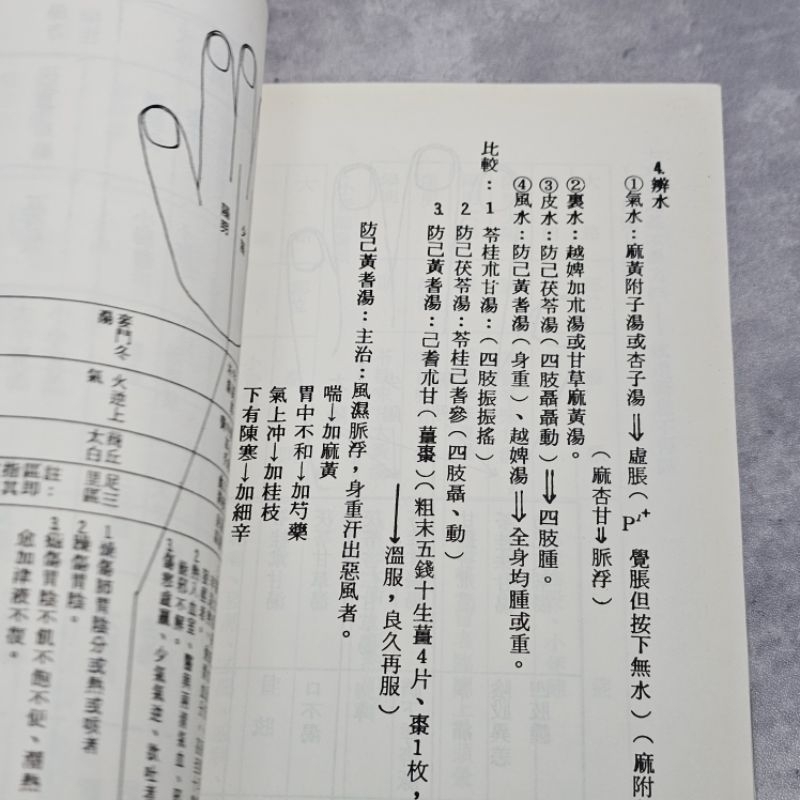 4.辨水
①氣水：麻黃附子湯或杏子湯⇒虛脹（P't+ 覺脹但按下無水）（麻附
（麻杏甘⇒脈浮）
②裏水：越婢加朮湯或甘草麻黃湯。
③皮水：防己茯苓湯（四肢聶聶動）⇒四肢腫。
④風水：防己黃耆湯（身重）、越婢湯⇒全身均腫或重。
比較：1 苓桂朮甘湯：（四肢振振搖）
2. 防己茯苓湯：苓桂己耆參（四肢聶、動）
3. 防己黃耆湯：己耆朮甘（薑棗）（粗末五錢十生薑4片、棗1枚，
→溫服，良久再服）
防己黃耆湯：主治：風濕脈浮，身重汗出惡風者。
喘→加麻黃
胃中不和→加芍藥
氣上冲→加桂枝
下有陳寒→加細辛
氣
火逆上
太白
足三
里區
註：
區即
指其
1.燥傷肺胃陰分或熱或咳者
2.燥傷胃陰。
3.燥傷胃陰不飢不飽不便、潮熱
愈加津液不復。